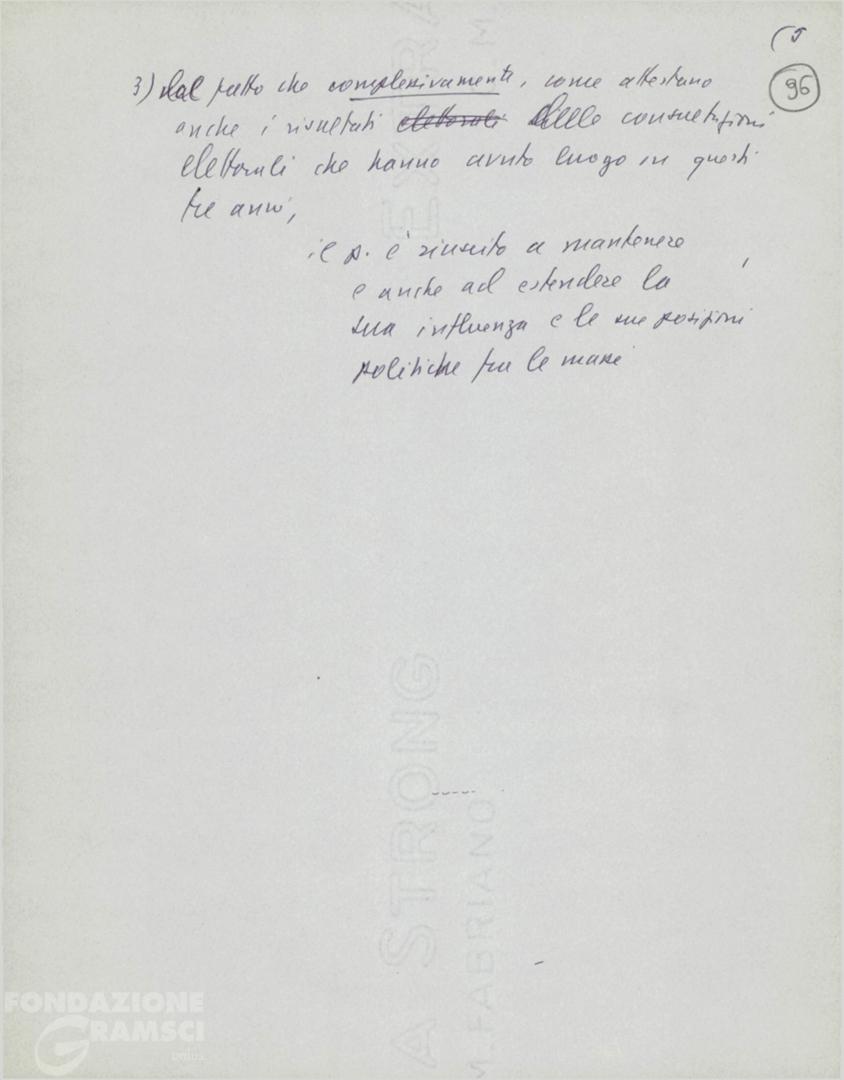 (5
96
3) dal fatto che complessivamente, come attestano
anche i risultati elettorali delle consultazioni
elettorali che hanno avuto luogo in questi
tre anni,
il p. è riuscito a mantenere
e anche ad estendere la
sua influenza e le sue posizioni
politiche fra le masse
EXTRA
M.
A STRONG
M. FABRIANO
FONDAZIONE
GRAMSCI